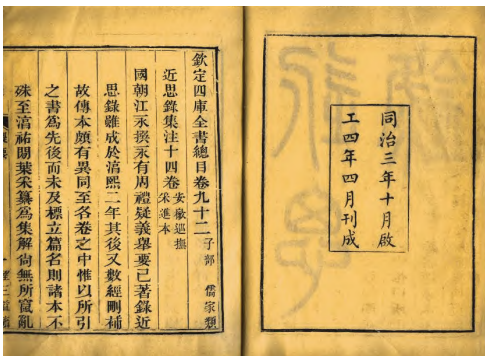 同治三年十月啟
工四年四月刊成
欽定四庫全書總目卷九十二 子部 儒家類
近思錄集注十四卷 安徽巡撫
采進本
國朝江永撰永有周禮疑義舉要已著錄近
思錄雖成於淳熙二年其後又數經刪補
故傳本頗有異同至各卷之中惟以所引
之書為先後而未及標立篇名則諸本不
殊至淳祐閒葉采纂為集解尚無所竄亂